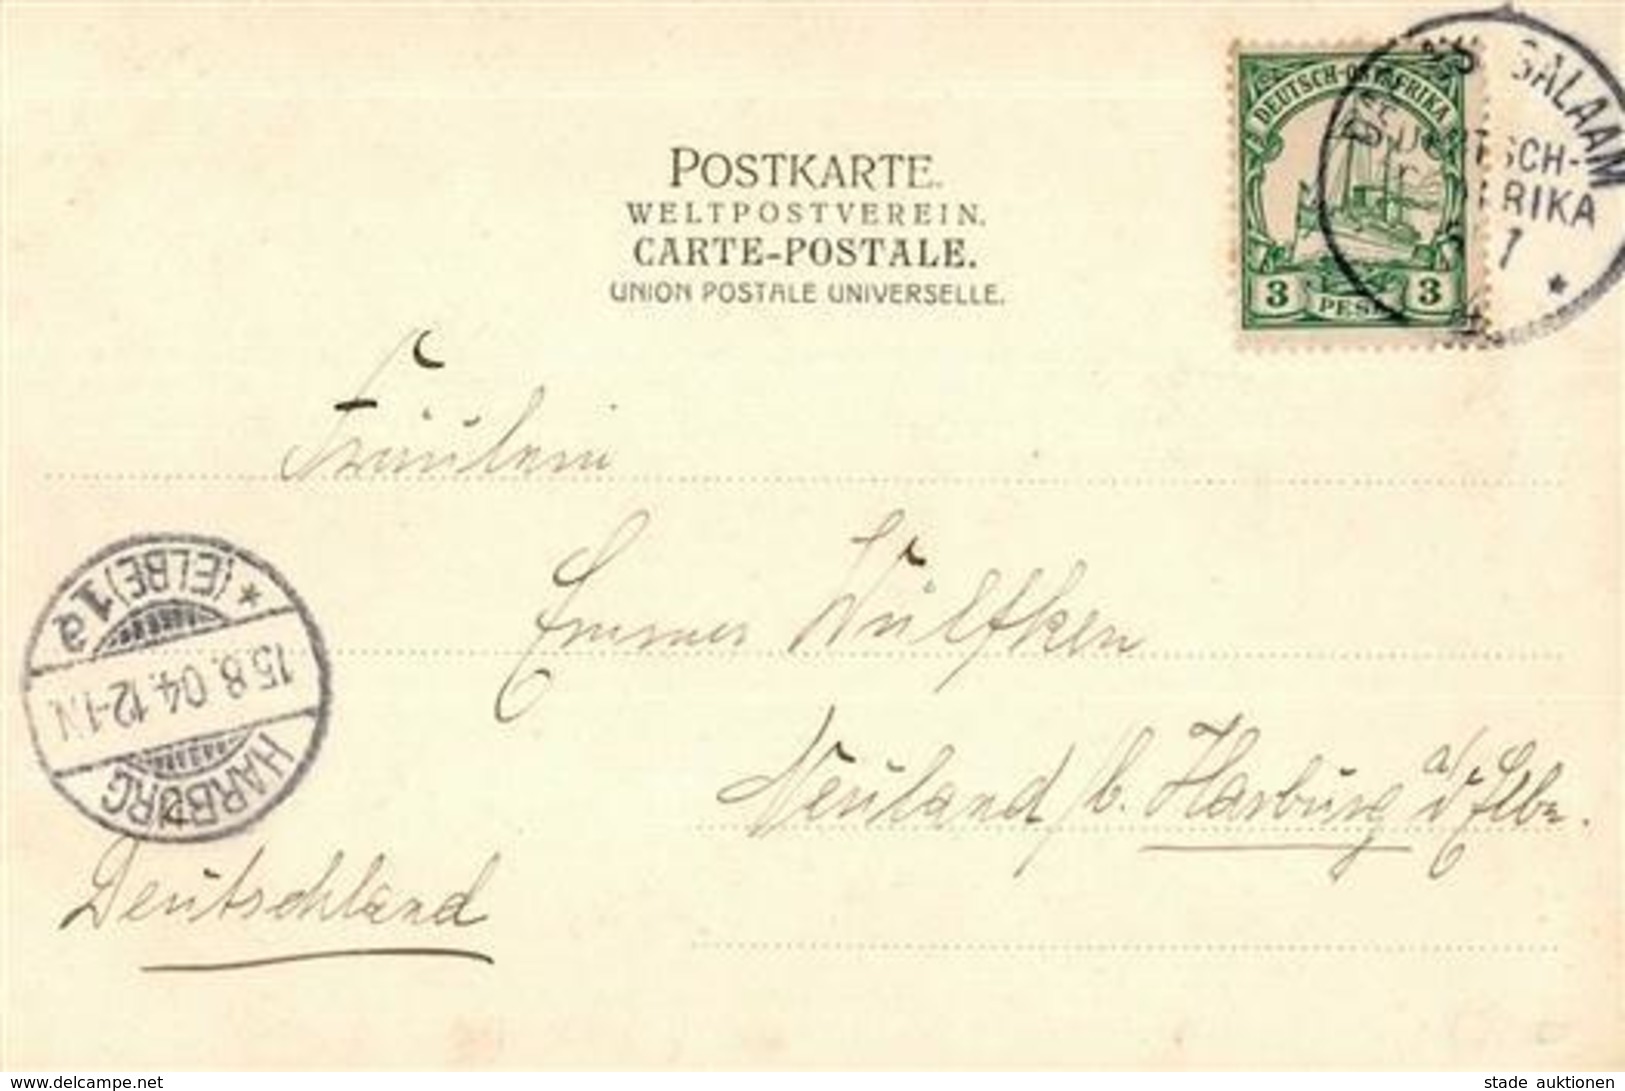 POSTKARTE.
WELTPOSTVEREIN.
CARTE-POSTALE.
UNION POSTALE UNIVERSELLE.
DEUTSCH-OSTAFRIKA
3 PESA 3
SALAAM
DEUTSCH-
OSTAFRIKA
Fräulein
Emma Wülfken
Neuland / b. Harburg a/d Elbe.
Deutschland
HARBURG
15.8.04.12-1.N
* (ELBE) 1 a
www.delcampe.net
stade auktionen